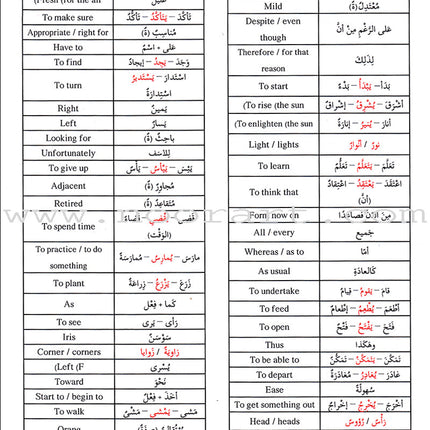 To make sure تَأَكَّدَ – يَتَأَكَّدُ – تَأَكُّدٌ
Appropriate / right for مُناسِبٌ (ةٌ)
Have to عَلى + اسْمٌ
To find وَجَدَ – يَجِدُ – إيجادٌ
To turn اسْتَدارَ – يَسْتَديرُ –
اسْتِدارَةٌ
Right يَمينٌ
Left يَسارٌ
Looking for باحِثٌ (ةٌ)
Unfortunately لِلأسَف
To give up يَئِسَ – يَيْأَسُ – يَأْسٌ
Adjacent مُجاوِرٌ (ةٌ)
Retired مُتَقاعِدٌ (ةٌ)
To spend time
(الوَقْت)
To practice / to do
something مارَسَ – يُمارِسُ – مُمارَسَةٌ
To plant زَرَعَ – يَزْرَعُ – زِراعَةٌ
As كَما + فِعْل
To see رَأى – يَرى
Iris سَوْسَنٌ
Corner / corners زاوِيَةٌ / زَوايا
(Left (F يُسْرى
Toward نَحْوَ
Start to / begin to أخَذَ + فِعْلٌ
To walk مَشى – يَمْشي – مَشْيٌ
Mild مُعْتَدِلٌ (ةٌ)
Despite / even
though عَلى الرَّغْمِ مِنْ أنَّ
Therefore / for that
reason لِذَلِكَ
To start بَدَأَ – يَبْدَأُ – بَدْءٌ
(To rise (the sun أشْرَقَ – يُشْرِقُ – إشْراقٌ
(To enlighten (the sun أنارَ – يُنيرُ – إنارَةٌ
Light / lights نورٌ / أنْوارٌ
To learn تَعَلَّمَ – يَتَعَلَّمُ – تَعَلُّمٌ
To think that اعْتَقَدَ – يَعْتَقِدُ – اعْتِقادٌ
(أنَّ)
Form now on مِنَ الآنَ فَصاعِدًا
All / every جَميع
Whereas / as to أمّا
As usual كَالعادَةِ
To undertake قامَ – يَقومُ – قِيامٌ
To feed أطْعَمَ – يُطْعِمُ – إطْعامٌ
To open فَتَحَ – يَفْتَحُ – فَتْحٌ
Thus وهَكَذا
To be able to تَمَكَّنَ – يَتَمَكَّنُ – تَمَكُّنٌ
To depart غادَرَ – يُغادِرُ – مُغادَرَةٌ
Ease سُهولَةٌ
To get something out أخْرَجَ – يُخْرِجُ – إخْراجٌ
Head / heads رَأْسٌ / رُؤوسٌ